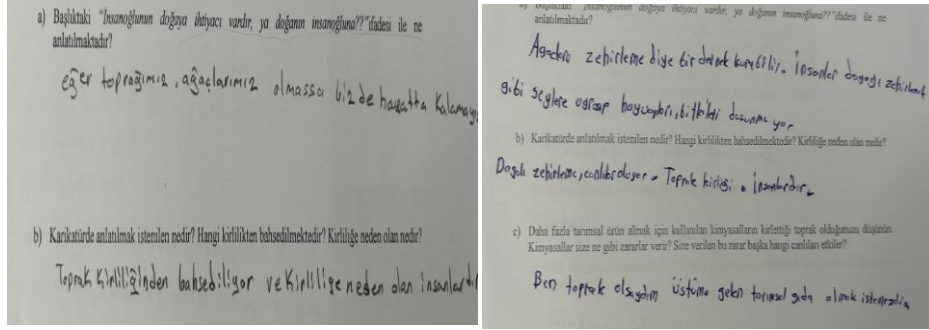 a) Başlıktaki "İnsanoğlunun doğaya ihtiyacı vardır, ya doğanın insanoğluna??" ifadesi ile ne
anlatılmaktadır?
eğer toprağımız, ağaçlarımız olmassa bizde hayatta kalamayı
b) Karikatürde anlatılmak istenilen nedir? Hangi kirlilikten bahsedilmektedir? Kirliliğe neden olan nedir?
Toprak Kirliliğinden bahsediliyor ve Kirliliğe neden olan insanlardır
Başlıktaki "İnsanoğlunun doğaya ihtiyacı vardır, ya doğanın insanoğluna??" ifadesi ile ne
anlatılmaktadır?
zehirleme diye bir dernek kurabilir. İnsanlar doğayı zehirlemek
gibi şeylere ugrasıp hayvanları, bitkileri
b) Karikatürde anlatılmak istenilen nedir? Hangi kirlilikten bahsedilmektedir? Kirliliğe neden olan nedir?
zehirleme, Toprak kirliği. İnsanlardır.
c) Daha fazla tarımsal ürün almak için kullanılan kimyasalların kirlettiği toprak olduğunuzu düşünün.
Kimyasallar size ne gibi zararlar verir? Size verilen bu zarar başka hangi canlıları etkiler?
Ben toprak olsaydım üstüme gelen tarımsal gıda almak istemezdim